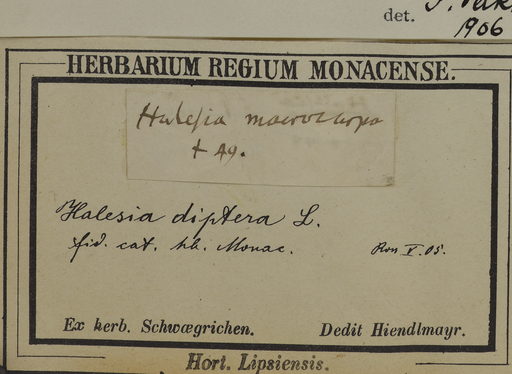 det.
1906
HERBARIUM REGIUM MONACENSE.
Halesia macrocarpa
Halesia diptera L.
fid. cat. hb. Monac. Ron. V. 05.
Ex herb. Schwægrichen. Dedit Hiendlmayr.
Hort. Lipsiensis.